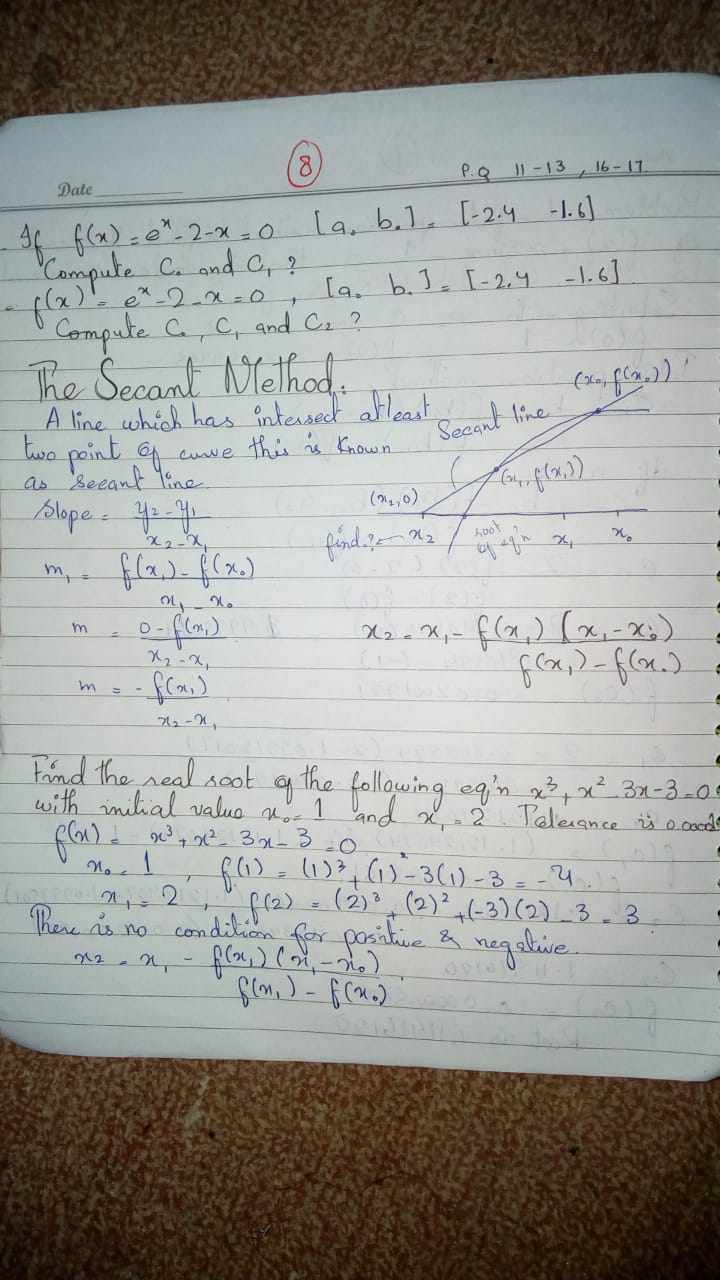 8
P.Q 11-13, 16-17
Date
If f(x) = eˣ-2-x = 0 [a₀ b₀] = [-2.4 -1.6]
Compute C₀ and C₁ ?
f(x) = eˣ-2-x = 0, [a₀ b₀] = [-2.4 -1.6]
Compute C₀, C₁ and C₂ ?
The Secant Method.
A line which has intersect atleast
two point of curve this is known
as secant line.
Secant line
(x₀, f(x₀))
(x₁, f(x₁))
(x₂,0)
find?← x₂
root of eq'n
x₁
x₀
Slope = y₂-y₁ / x₂-x₁
m₁ = f(x₁) - f(x₀) / x₁ - x₀
m = 0-f(x₁) / x₂-x₁
m = -f(x₁) / x₂-x₁
x₂ = x₁ - f(x₁) (x₁-x₀) / f(x₁) - f(x₀)
Find the real root of the following eq'n x³+x²-3x-3=0
with initial value x₀=1 and x₁=2. Tolerance is
f(x) = x³+x²-3x-3=0
x₀=1, f(1) = (1)³+(1)²-3(1)-3 = -4.
x₁=2, f(2) = (2)³+(2)²+(-3)(2)-3=3
There is no condition for positive & negative.
x₂ = x₁ - f(x₁)(x₁-x₀) / f(x₁) - f(x₀)